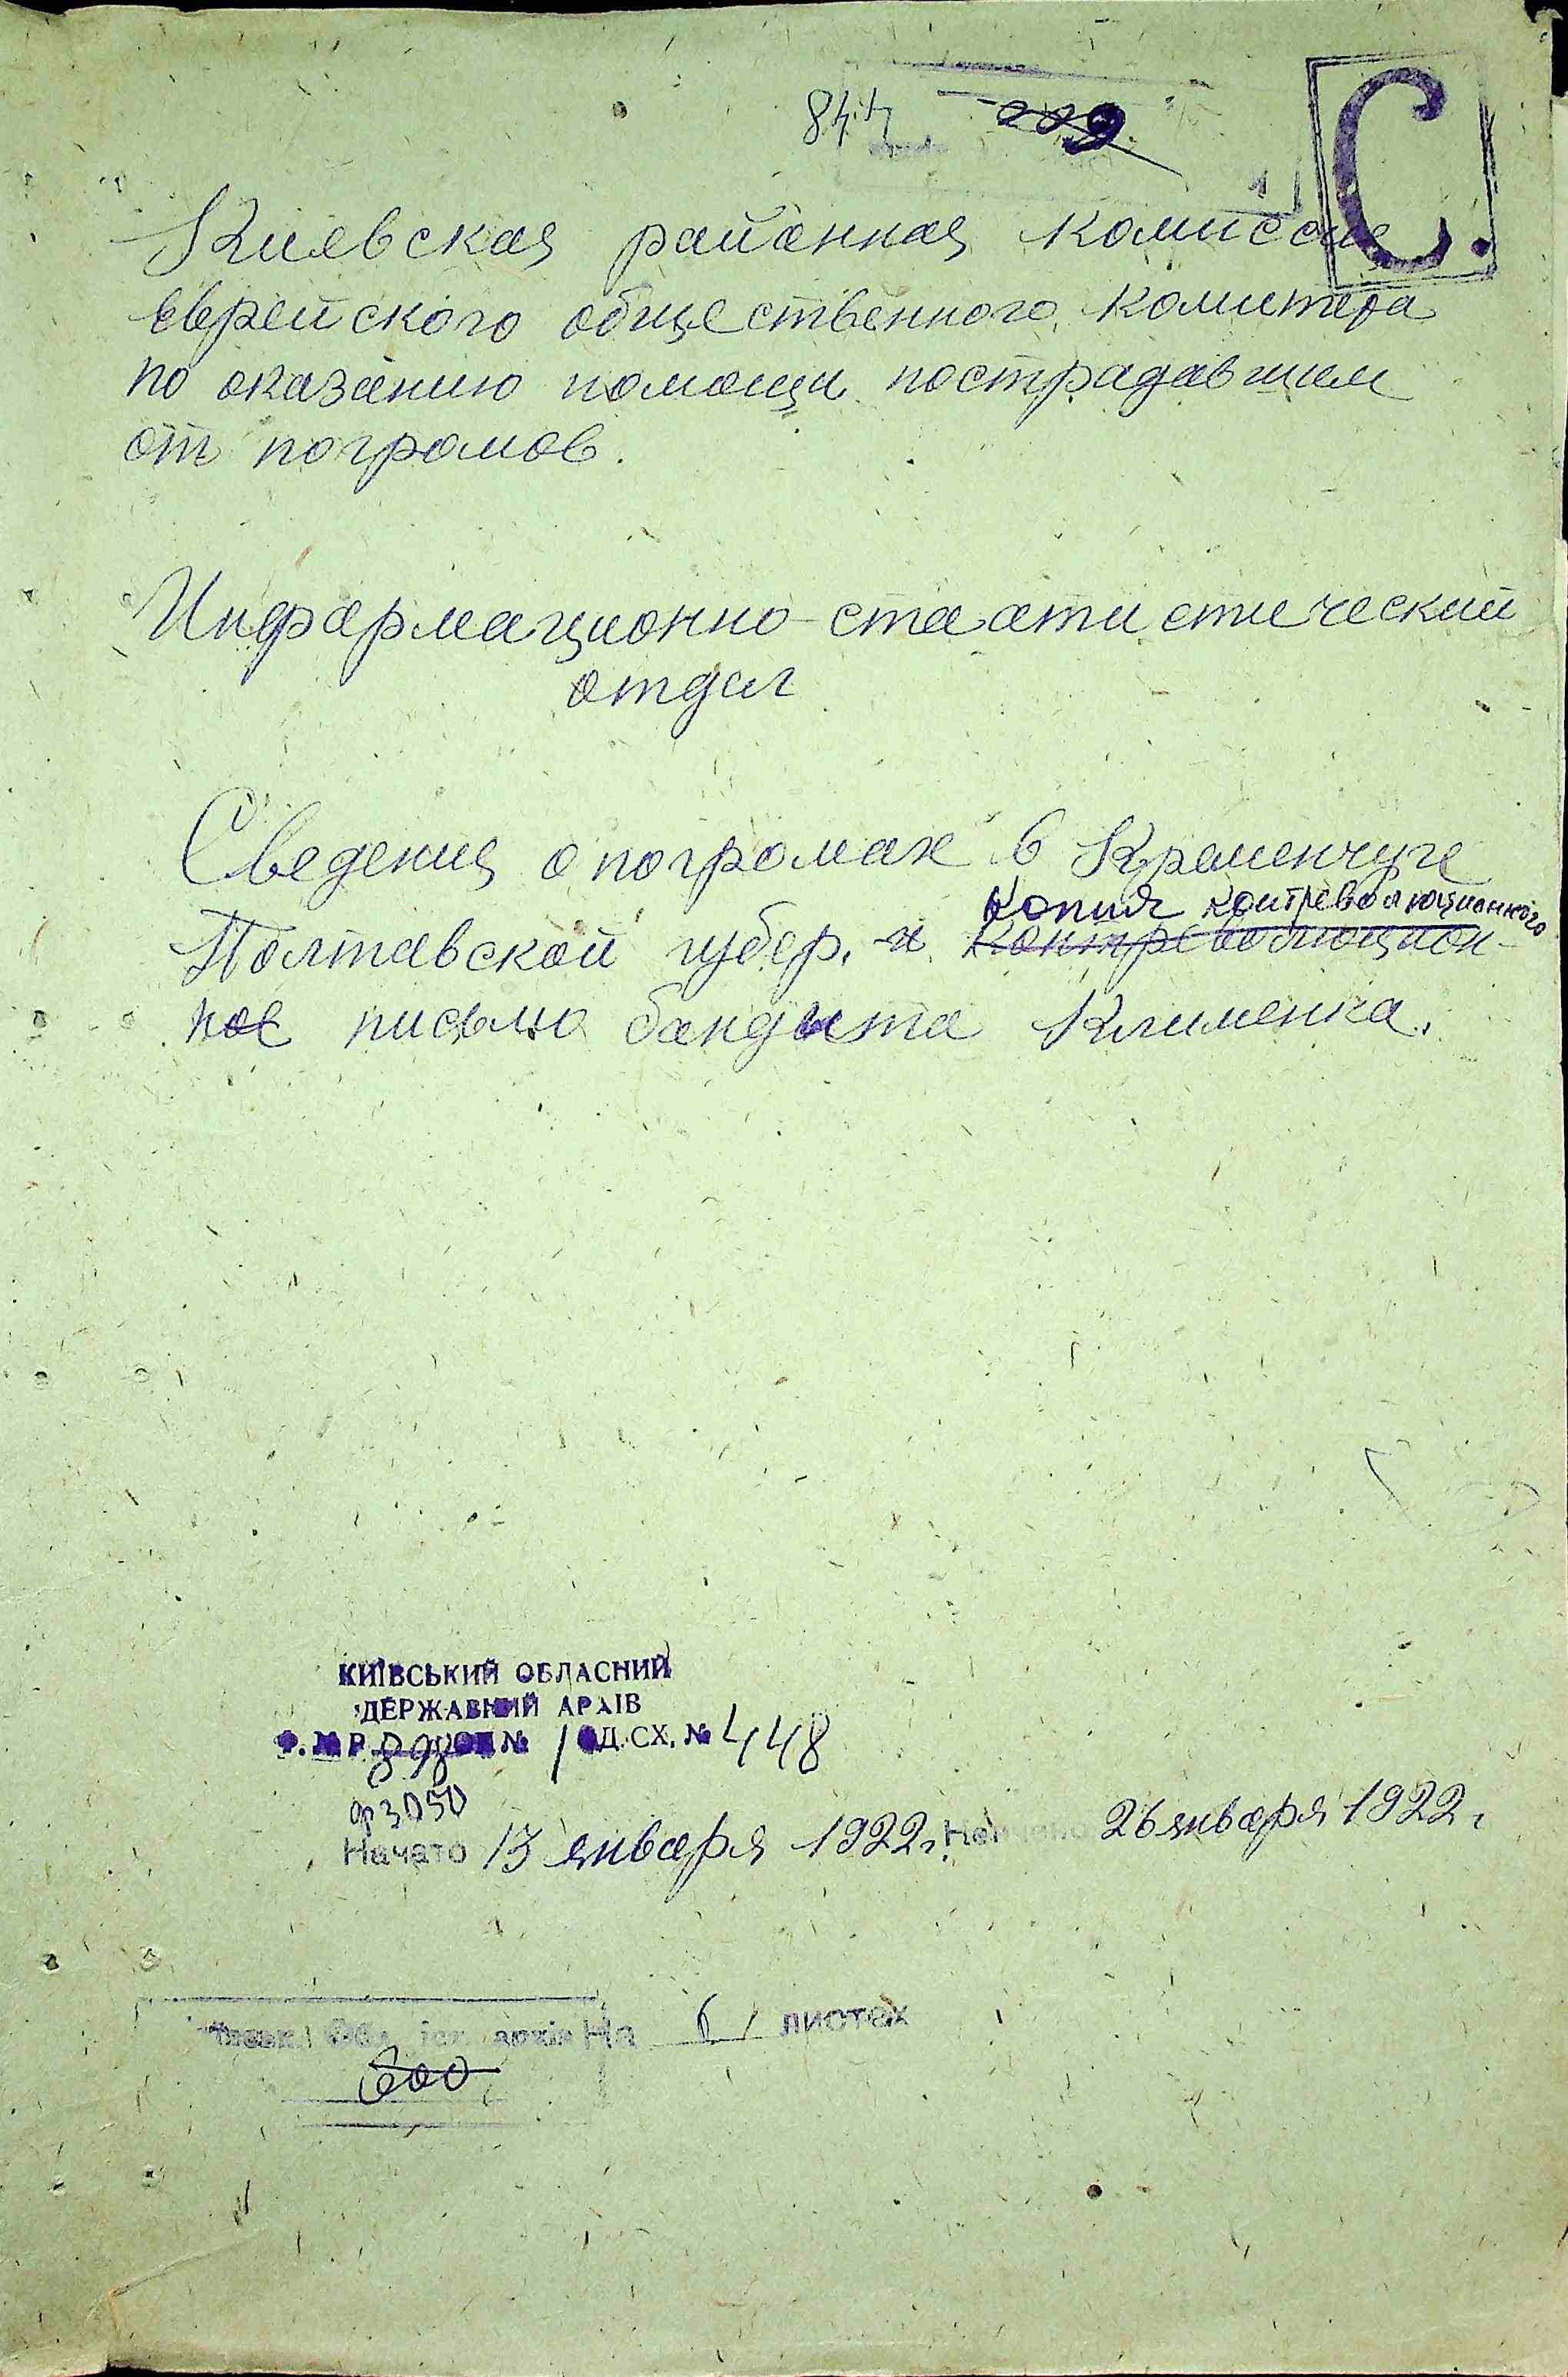 С.
Киевская районная комиссия
еврейского общественного комитета
по оказанию помощи пострадавшим
от погромов.
Информационно-стаатистический
отдел
Сведения о погромах в Кременчуге
копия контрреволюционного
Полтавской губер. и контрреволюцион-
ное письмо бандита Клименка.
КИЇВСЬКИЙ ОБЛАСНИЙ
ДЕРЖАВНИЙ АРХІВ
Ф. № Р 898 ОП № 1 ОД. СХ. № 448
ф 3050
Начато 13 января 1922 г. Кончено 26 января 1922 г.
На 6 листах
800